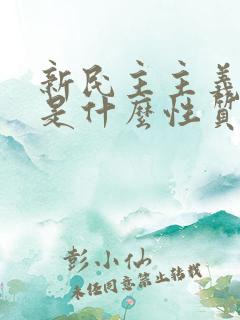 新民主主義
是什麼性質
彭小仙
未经同意禁止转载